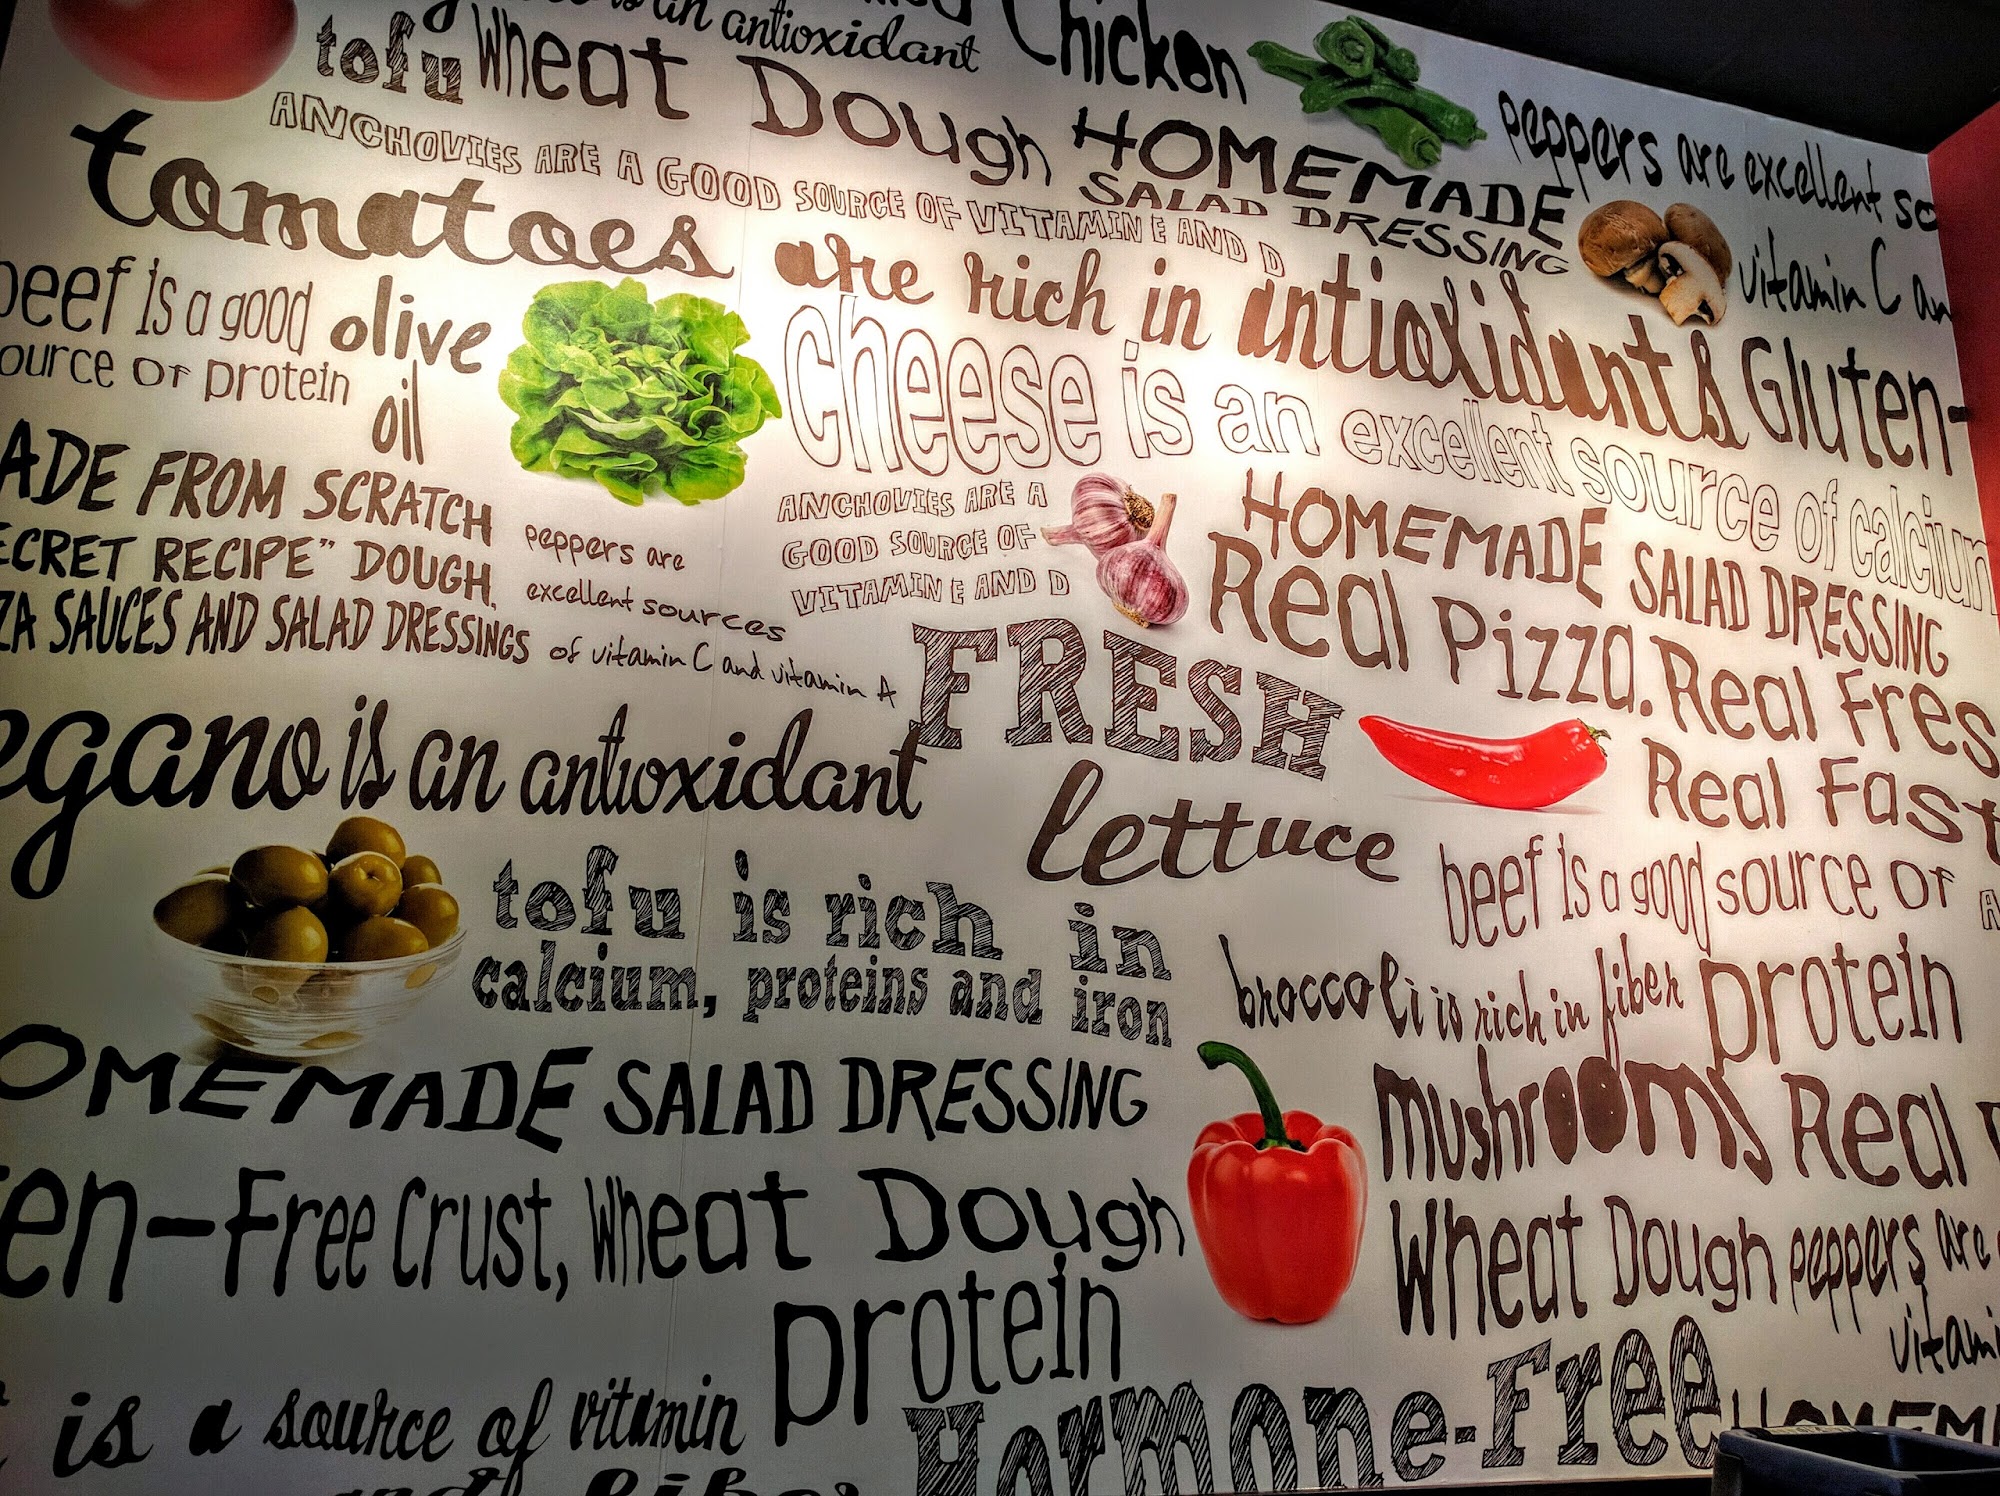 is an antioxidant
Chicken
tofu Wheat Dough
HOMEMADE
SALAD DRESSING
peppers are excellent so
vitamin C an
ANCHOVIES ARE A GOOD SOURCE OF VITAMIN E AND D
tomatoes are rich in antioxidants
Gluten-
beef is a good
ource of protein
olive
oil
cheese is an excellent source of calcium
ADE FROM SCRATCH
ECRET RECIPE" DOUGH.
ZA SAUCES AND SALAD DRESSINGS
peppers are
excellent sources
of vitamin C and vitamin A
ANCHOVIES ARE A
GOOD SOURCE OF
VITAMIN E AND D
HOMEMADE SALAD DRESSING
Real Pizza. Real Fres
Real Fast
FRESH
lettuce
egano is an antioxidant
beef is a good source of
protein
tofu is rich in
calcium, proteins and iron
broccoli is rich in fiber
mushrooms
Real
OMEMADE SALAD DRESSING
en-Free Crust, Wheat Dough
Wheat Dough
peppers are
vitami
protein
is a source of vitamin
Hormone-Free
HOMEM